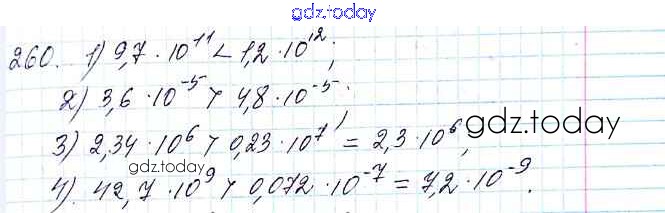 gdz.today
260. 1) 9,7 · 10¹¹ < 1,2 · 10¹²;
2) 3,6 · 10⁻⁵ > 4,8 · 10⁻⁵;
3) 2,34 · 10⁶ > 0,23 · 10⁷ = 2,3 · 10⁶, gdz.today
gdz.today
4) 42,7 · 10⁹ > 0,072 · 10⁻⁷ = 7,2 · 10⁻⁹.